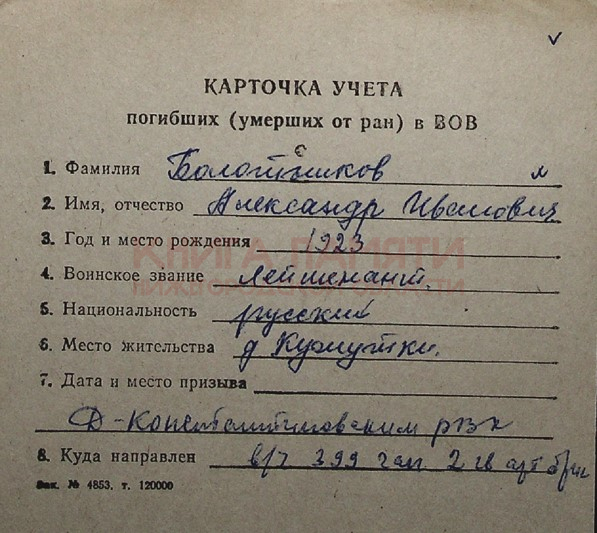 КАРТОЧКА УЧЕТА
погибших (умерших от ран) в ВОВ
1. Фамилия Болотников
2. Имя, отчество Александр Иванович
3. Год и место рождения 1923
КНИГА ПАМЯТИ
4. Воинское звание лейтенант.
НИЖЕГОРОДСКОЙ ОБЛАСТИ
5. Национальность русский
6. Место жительства д
7. Дата и место призыва
Д-Константиновским рвк
8. Куда направлен в/ч 399 гап 2 гв арт бриг
Зак. № 4853. т. 120000